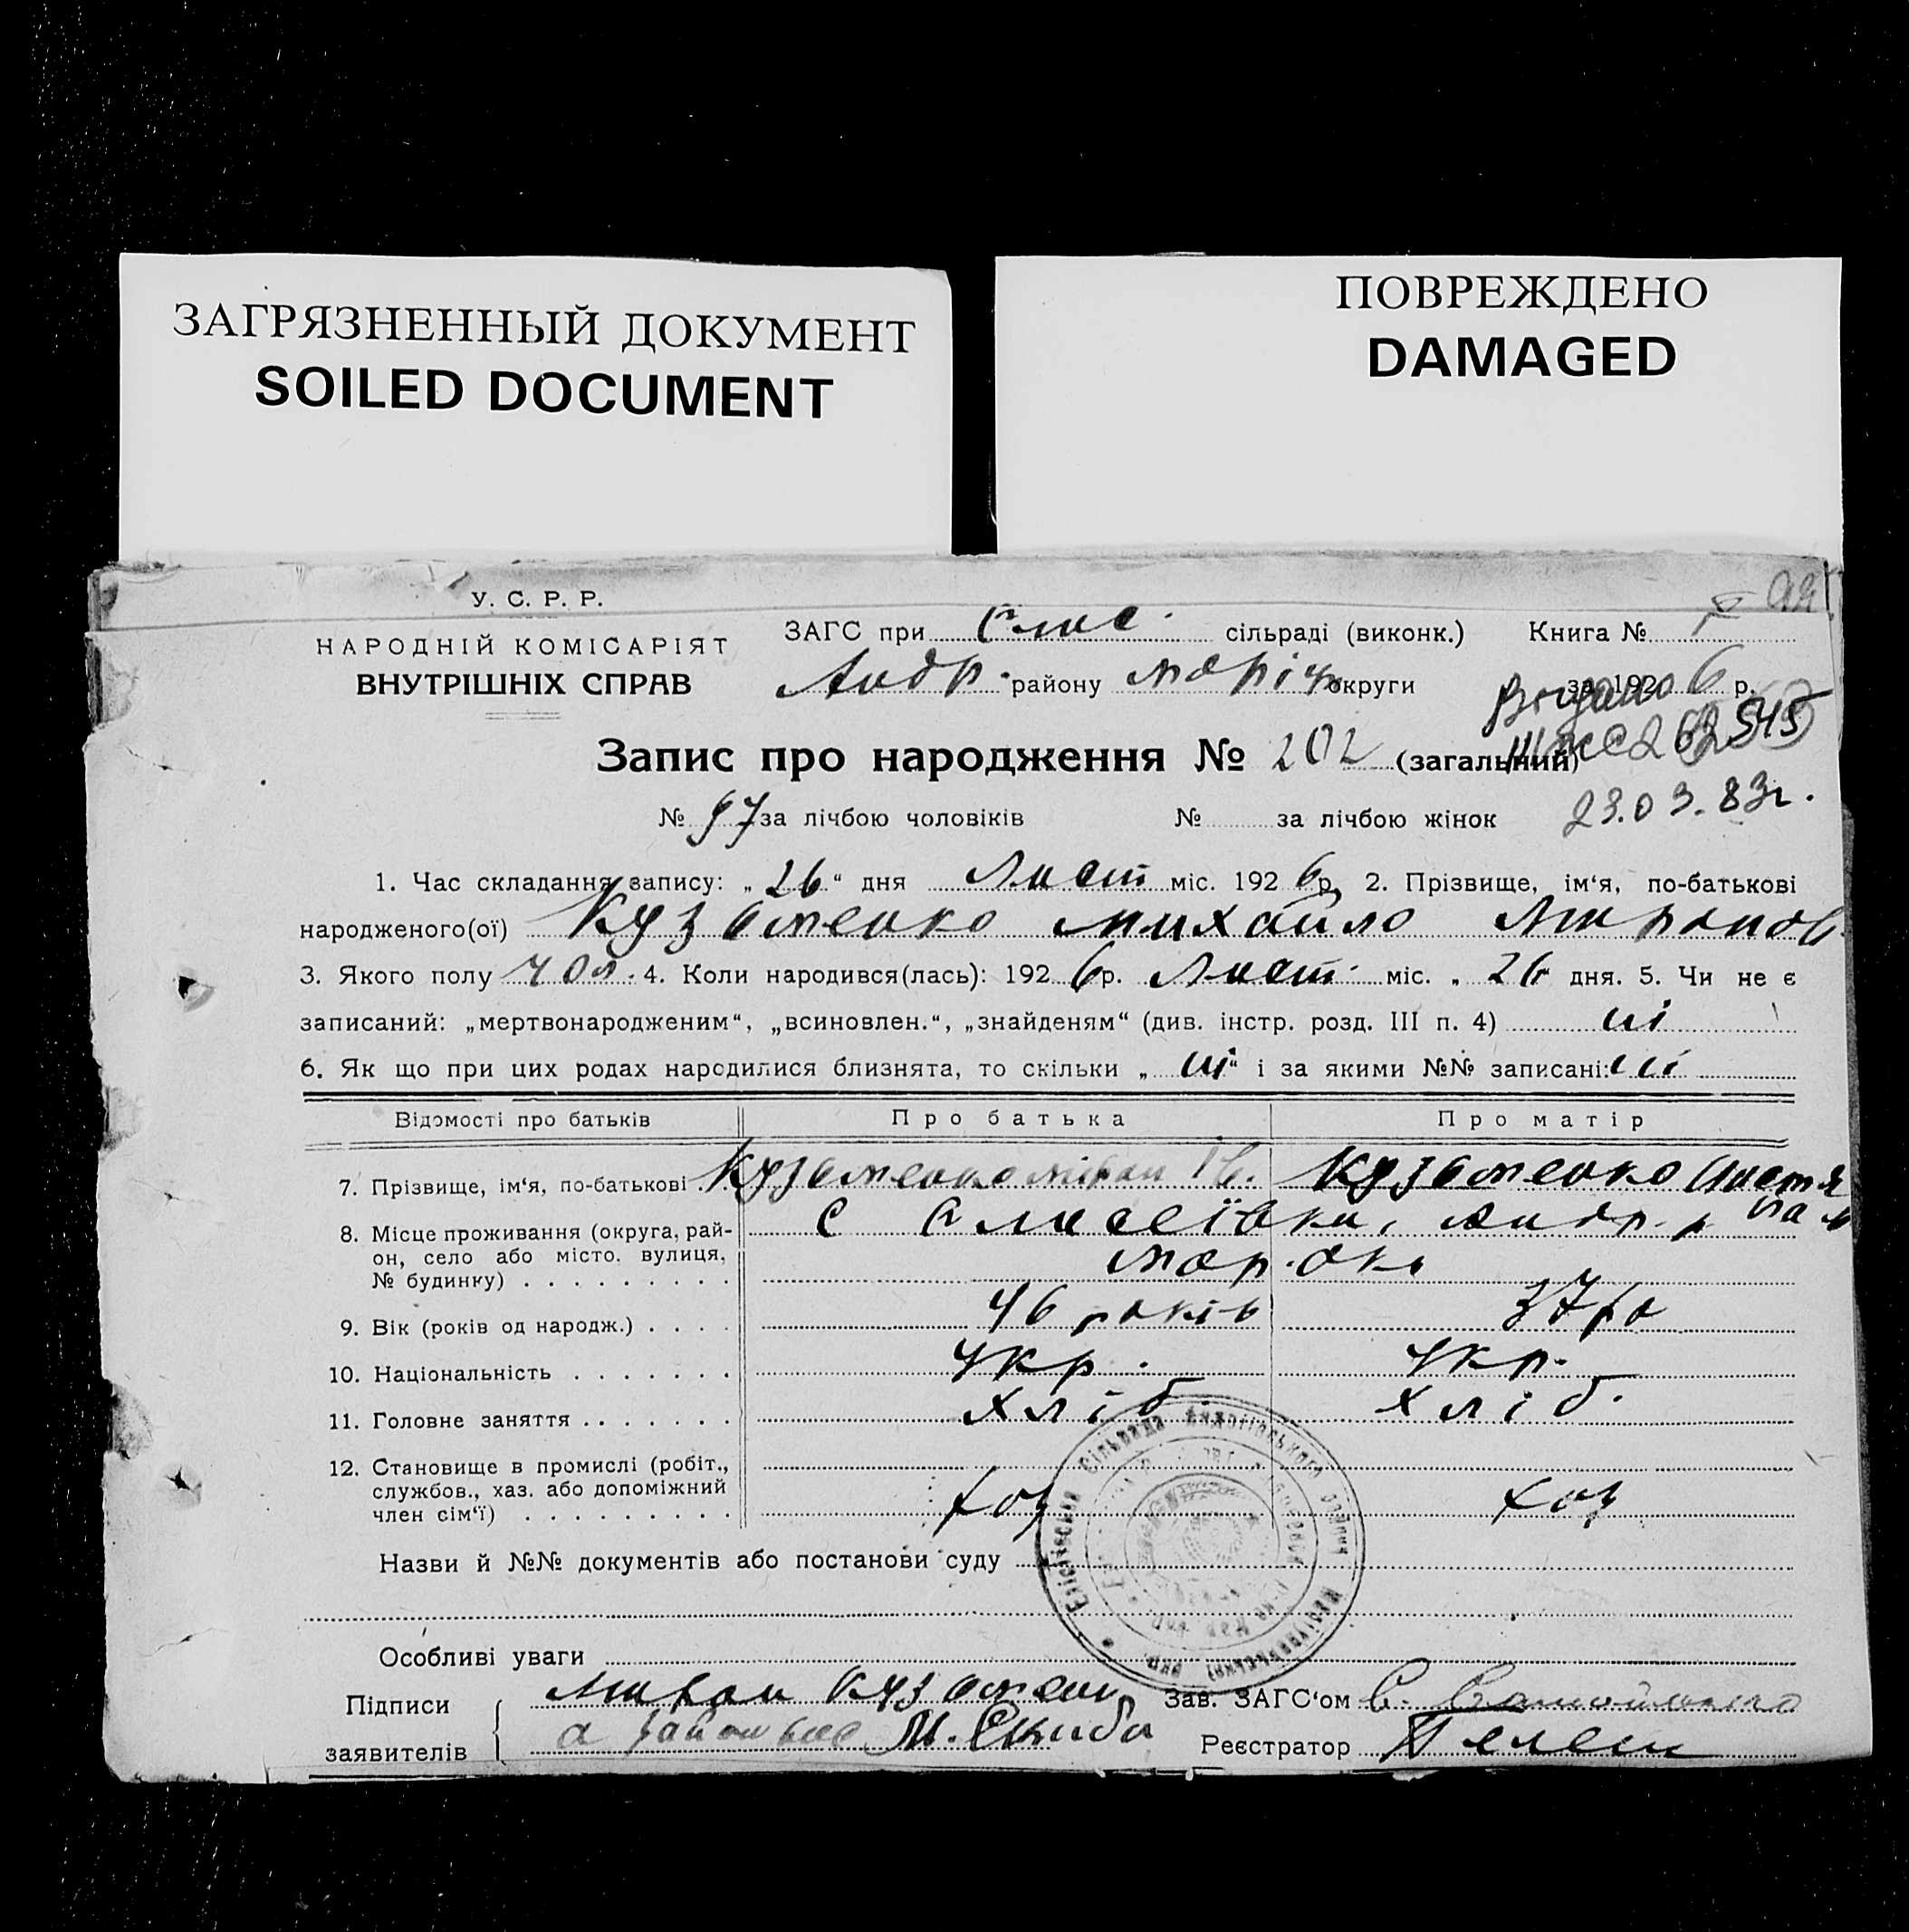 ЗАГРЯЗНЕННЫЙ ДОКУМЕНТ
SOILED DOCUMENT
ПОВРЕЖДЕНО
DAMAGED
У. С. Р. Р.
НАРОДНІЙ КОМІСАРІЯТ
ВНУТРІШНІХ СПРАВ
ЗАГС при Єлис. сільраді (виконк.) Книга №
Андр. району Маріуп округи за 1926 р.
Запис про народження № 202 (загальний)
545
№ 97 за лічбою чоловіків № за лічбою жінок
23.03.83г.
1. Час складання запису: „26“ дня Лист міс. 1926 р. 2. Прізвище, ім‘я, по-батькові
народженого(ої) Кузьменко Михайло Миронов.
3. Якого полу чол. 4. Коли народився(лась): 1926 р. Лист. міс. „26 дня. 5. Чи не є
записаний: „мертвонародженим“, „всиновлен.“, „знайденям“ (див. інстр. розд. III п. 4) ні
6. Як що при цих родах народилися близнята, то скільки „ні“ і за якими №№ записані: ні
Відомості про батьків Про батька Про матір
7. Прізвище, ім‘я, по-батькові . . Кузьменко Мірон Ів. Кузьменко Настя
8. Місце проживання (округа, рай-
он, село або місто. вулиця,
№ будинку) . . . . . . . . .
С Єлисеївка, Андр. р
Мар. окр
9. Вік (років од народж.) . . . . 46 років 37 ро
10. Національність . . . . . . . Укр. Укр.
11. Головне заняття . . . . . . . Хліб. Хліб.
12. Становище в промислі (робіт.,
службов., хаз. або допоміжний
член сім‘ї) . . . . . . . . .
Хоз Хоз
Назви й №№ документів або постанови суду
Сільрада Андріївського району Маріупільської окр.
Особливі уваги
Підписи
заявителів
Мирон Кузьменко
М. Скиба
Зав. ЗАГС‘ом С.
Реєстратор